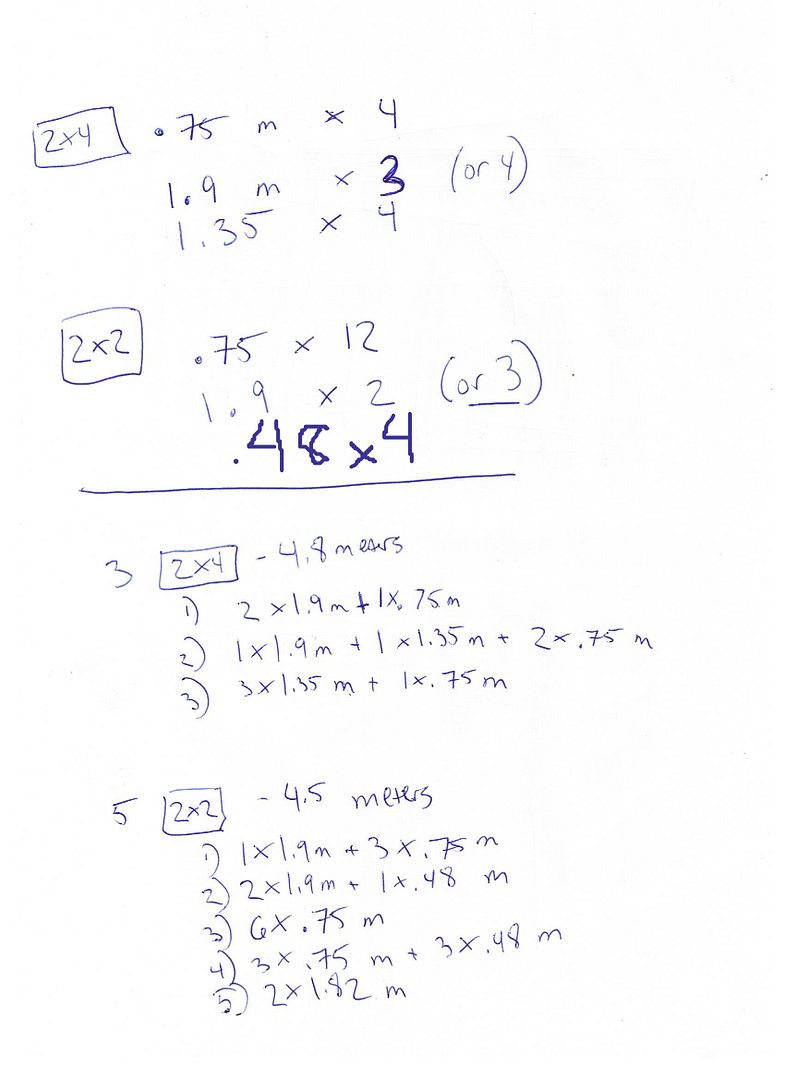 2x4 .75 m x 4
1.9 m x 3 (or 4)
1.35 x 4
2x2 .75 x 12
1.9 x 2 (or 3)
.48 x 4
3 2x4 - 4.8 meters
1) 2 x 1.9m + 1x.75m
2) 1x1.9m + 1x1.35m + 2x.75 m
3) 3x1.35 m + 1x.75m
5 2x2 - 4.5 meters
1) 1x1.9m + 3x.75m
2) 2x1.9m + 1x.48 m
3) 6x.75 m
4) 3x.75 m + 3x.48 m
5) 2x1.82 m